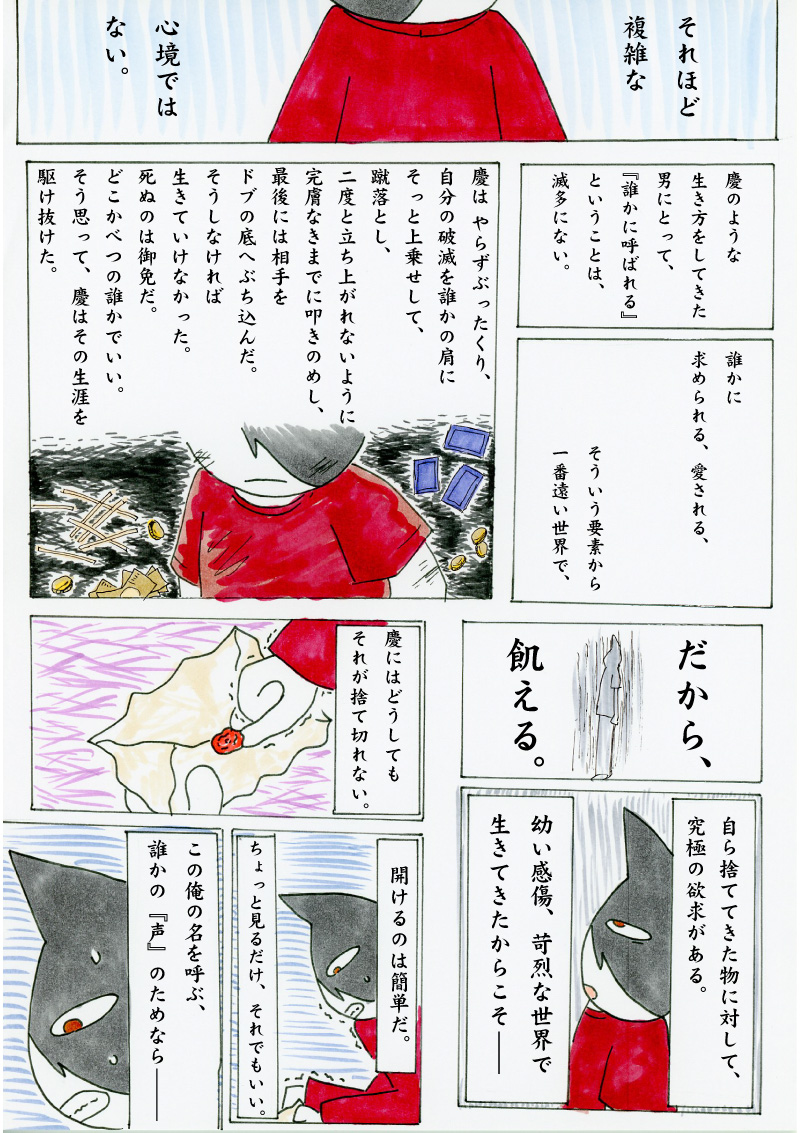 それほど
複雑な
心境では
ない。
慶のような
生き方をしてきた
男にとって、
『誰かに呼ばれる』
ということは、
滅多にない。
誰かに
求められる、愛される、
そういう要素から
一番遠い世界で、
慶は やらずぶったくり、
自分の破滅を誰かの肩に
そっと上乗せして、
蹴落とし、
二度と立ち上がれないように
完膚なきまでに叩きのめし、
最後には相手を
ドブの底へぶち込んだ。
そうしなければ
生きていけなかった。
死ぬのは御免だ。
どこかべつの誰かでいい。
そう思って、慶はその生涯を
駆け抜けた。
だから、
飢える。
慶にはどうしても
それが捨て切れない。
自ら捨ててきた物に対して、
究極の欲求がある。
幼い感傷、苛烈な世界で
生きてきたからこそ――
開けるのは簡単だ。
ちょっと見るだけ、それでもいい。
この俺の名を呼ぶ、
誰かの『声』のためなら――